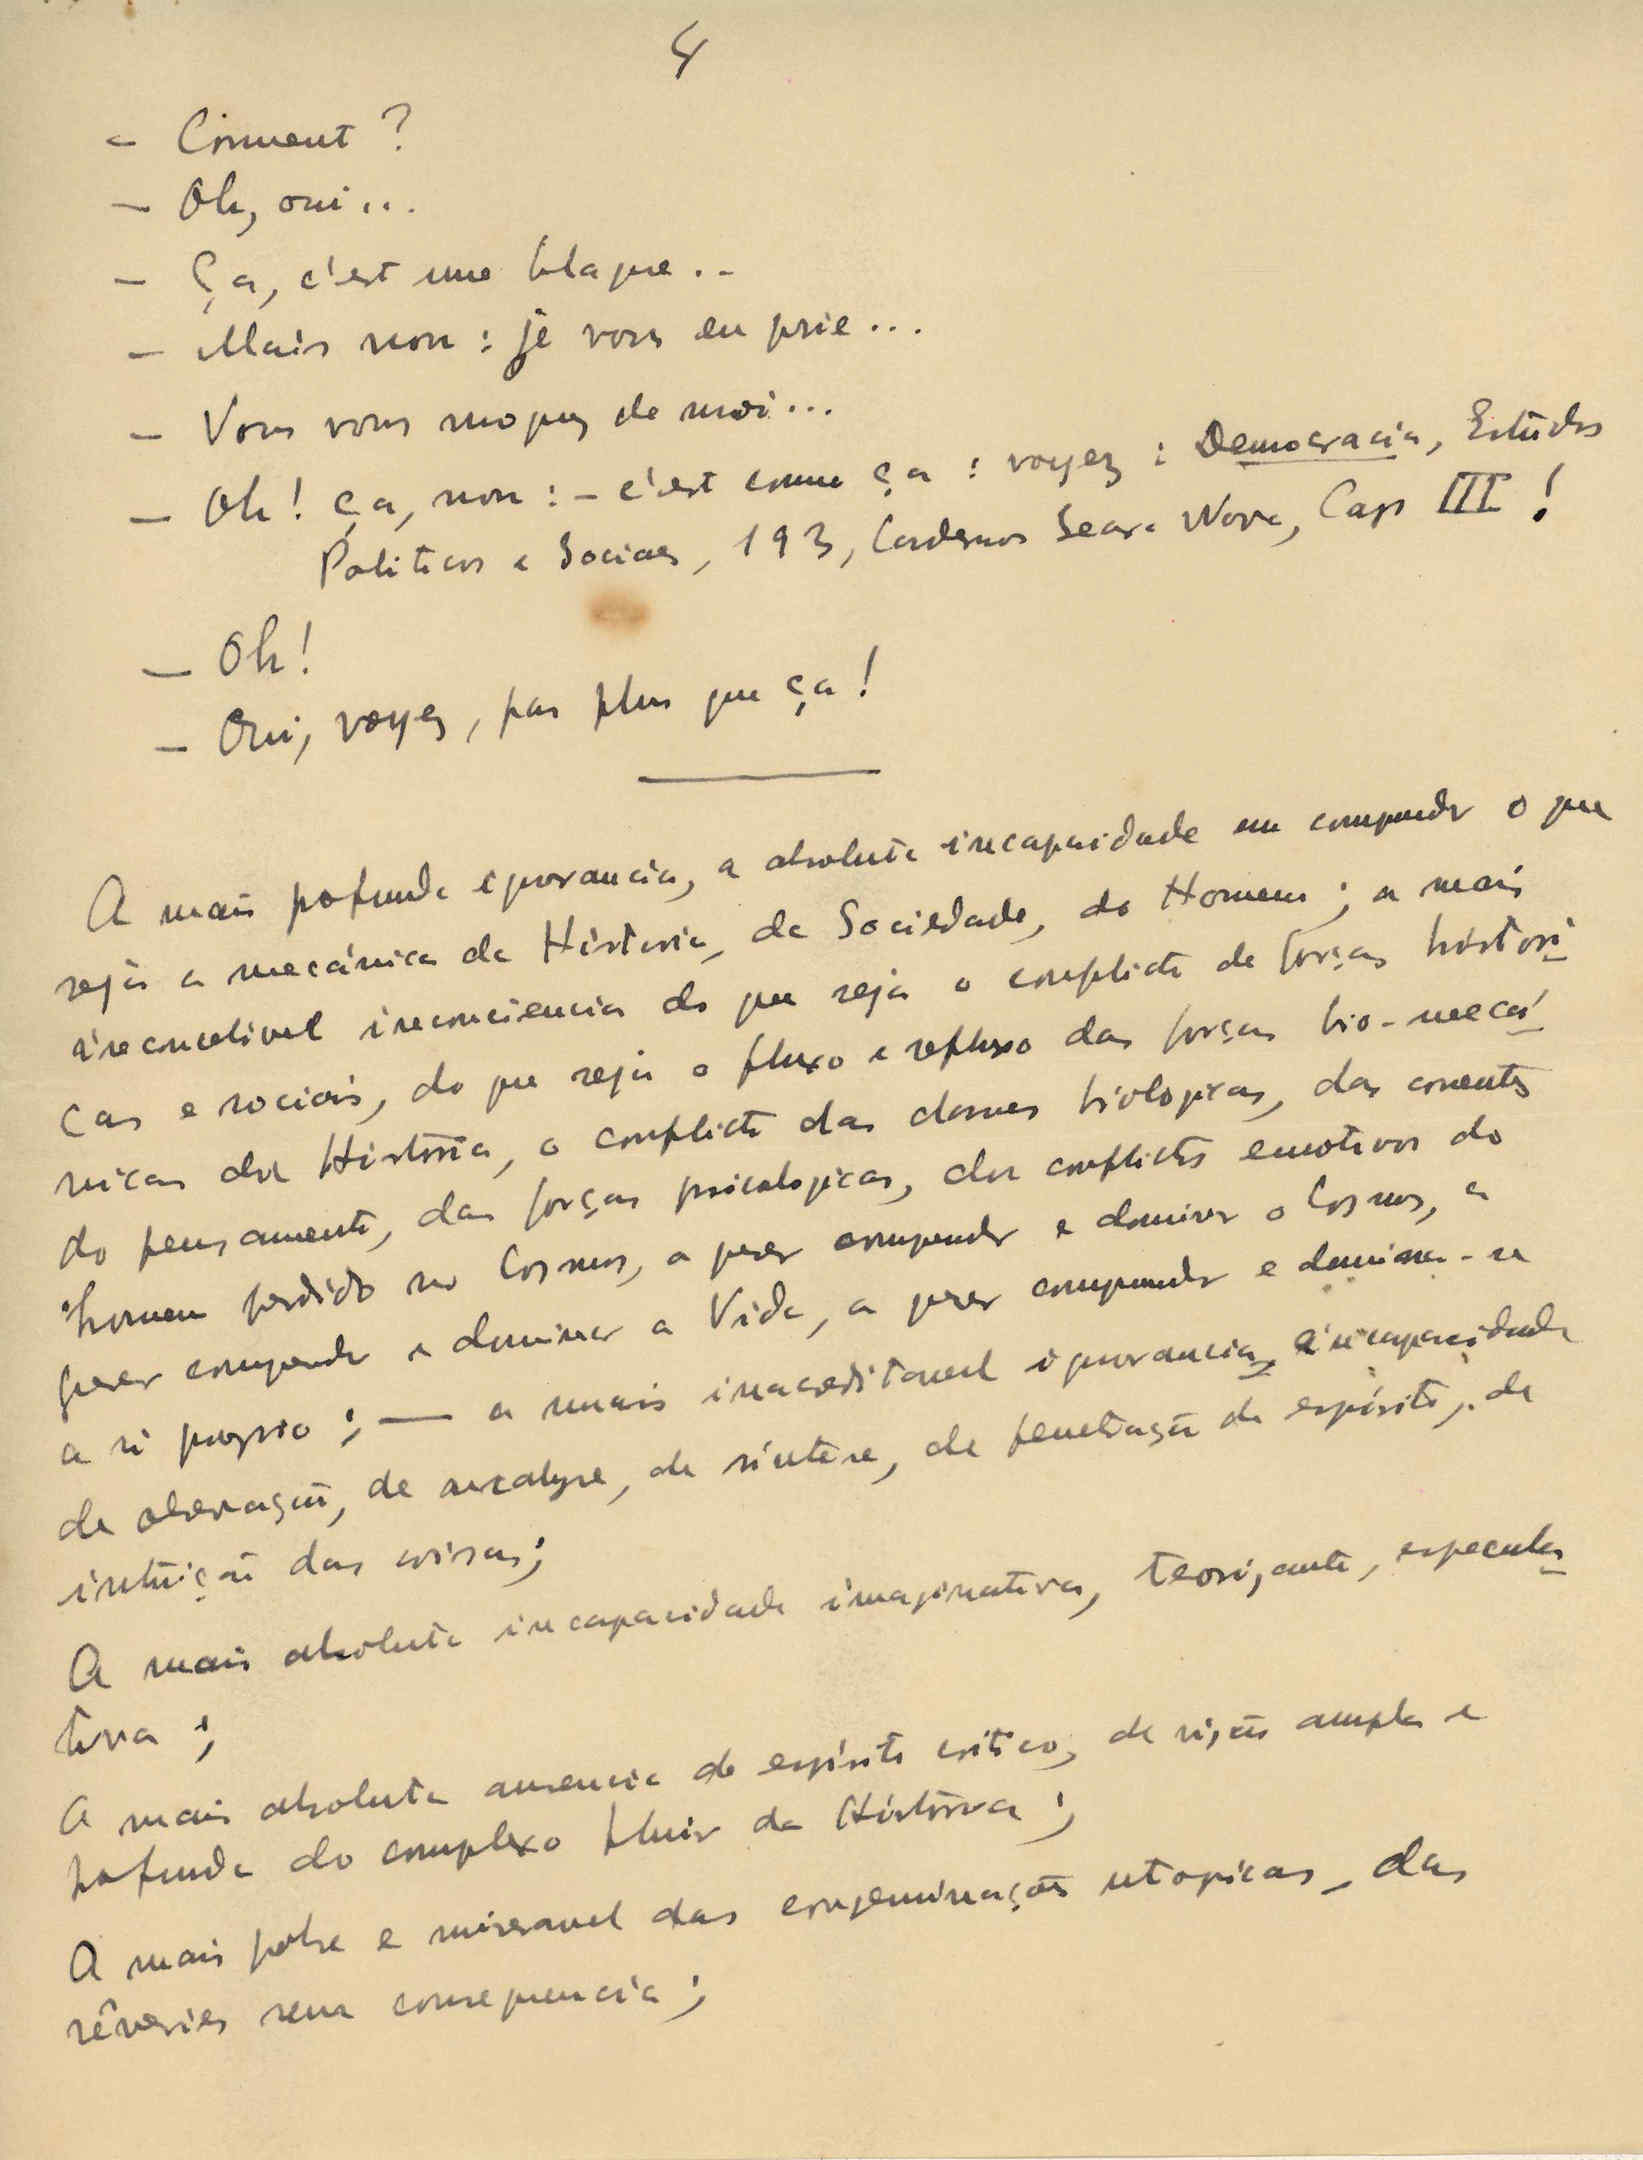 4
- Comment ?
- Oh, oui...
- Ça, c'est une blague..
- Mais non : je vous en prie...
- Vous vous moquez de moi...
- Oh! ça, non : - c'est comme ça : voyez : Democracia, Estudos
Politicos e Sociaes, 193, Cadernos Seara Nova, Cap III !
- Oh!
- Oui, voyez, pas plus que ça!
A mais profunda ignorancia, a absoluta incapacidade em compreender o que
seja a mecánica da História, da Sociedade, do Homem ; a mais
inconcebivel inconciencia do que seja o conflicto de forças histori-
cas e sociais, do que seja o fluxo e refluxo das forças bio-mecá-
nicas da História, o conflicto das classes biologicas, das correntes
do pensamento, das forças psicologicas, dos conflictos emotivos do
homem perdido no Cosmos, a querer compreender e dominar o Cosmos, a
querer compreender e dominar a Vida, a querer compreender e dominar-se
a si proprio ; — a mais inacreditavel ignorancia, e incapacidade
de observação, de analyse, de síntese, de penetração de espírito, de
intuição das coisas;
A mais absoluta incapacidade imaginativa, teorizante, especula-
tiva ;
A mais absoluta ausencia de espírito critico, de visão ampla e
profunda do complexo fluir da História ;
A mais pobre e miseravel das congeminações utopicas, das
rêveries sem consequencia ;